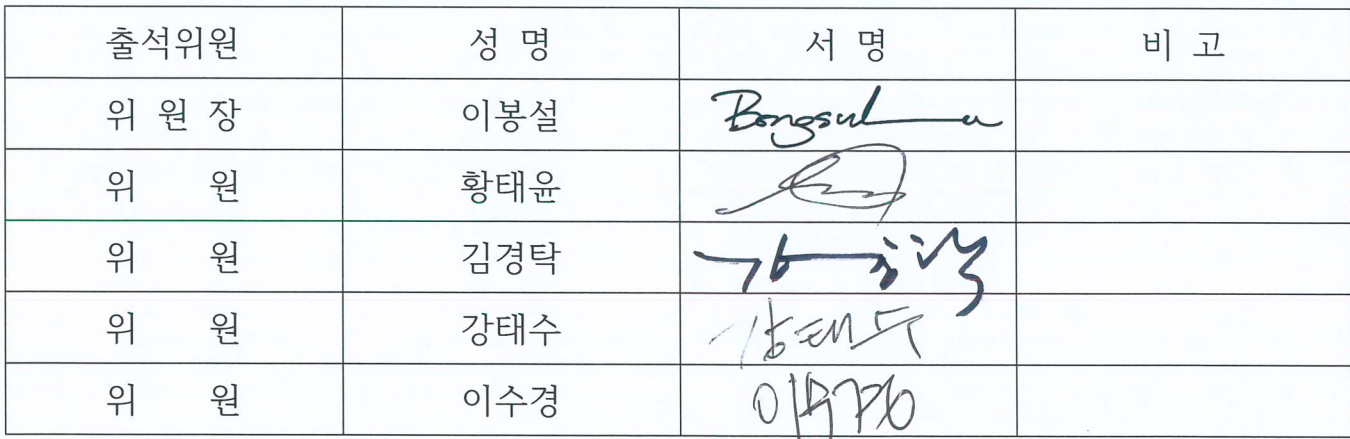 출석위원 성 명 서 명 비 고
위 원 장 이봉설 Bongsul
위 원 황태윤
위 원 김경탁
위 원 강태수 강태수
위 원 이수경 이수경